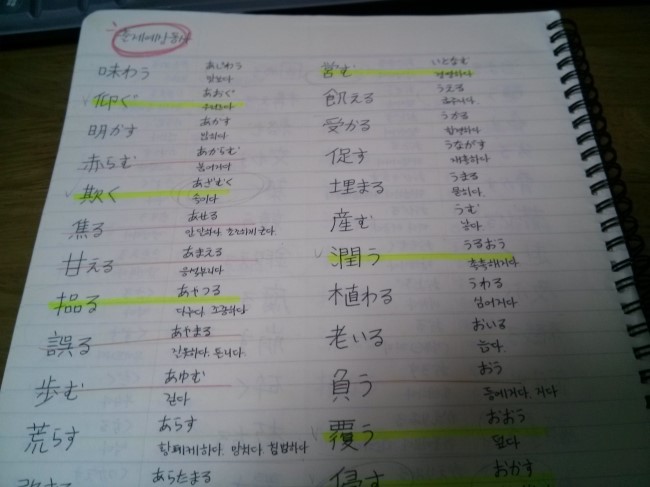 출제예상동사
味わう あじわう
맛보다
仰ぐ あおぐ
明かす あかす
밝히다
赤らむ あからむ
붉어지다
欺く あざむく
속이다
焦る あせる
甘える あまえる
응석부리다
操る あやつる
다루다. 조종하다
誤る あやまる
歩む あゆむ
걷다
荒らす あらす
황폐케하다. 망치다. 침범하다
あらたまる
営む いとなむ
경영하다
飢える うえる
굶주리다
受かる うかる
합격하다
促す うながす
재촉하다
埋まる うまる
묻히다.
産む うむ
낳다
潤う うるおう
축축해지다
植わる うわる
심어지다
老いる おいる
늙다.
負う おう
지다
覆う おおう
덮다
侵す おかす